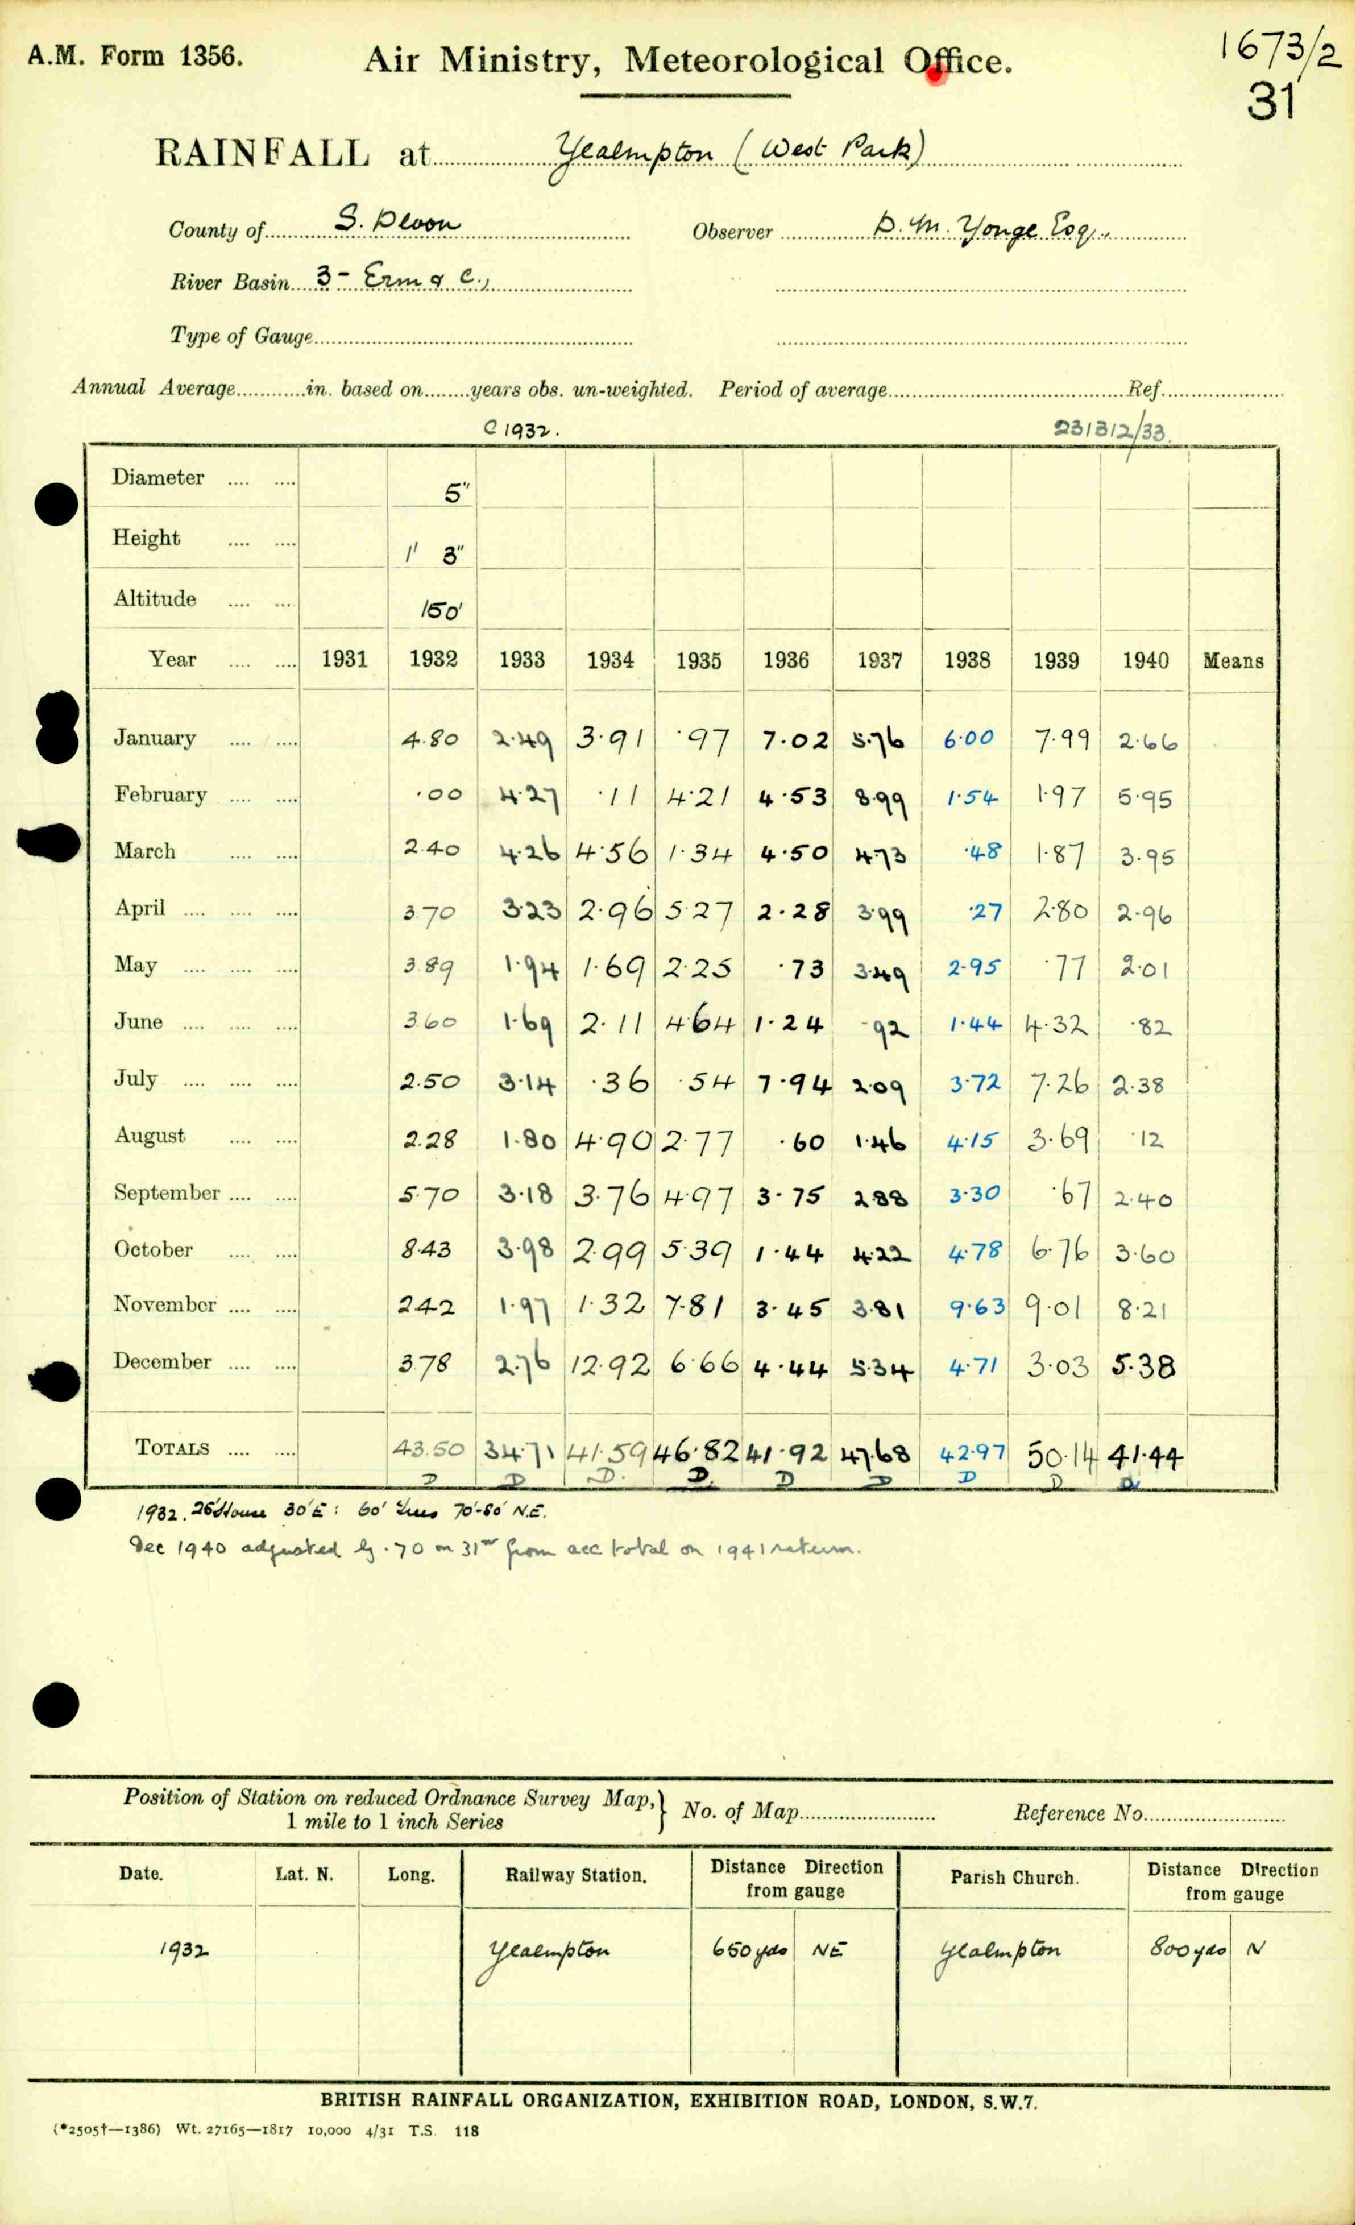 A.M. Form 1356. Air Ministry, Meteorological Office. 1673/2
31
RAINFALL at Yealmpton (West Park)
County of S. Devon Observer D. M. Yonge Esq.,
River Basin 3 - Erm & C.,
Type of Gauge
Annual Average in. based on years obs. un-weighted. Period of average Ref.
C 1932. 231312/33.
Diameter 5"
Height 1' 3"
Altitude 150'
Year 1931 1932 1933 1934 1935 1936 1937 1938 1939 1940 Means
January 4.80 2.49 3.91 .97 7.02 5.76 6.00 7.99 2.66
February .00 4.27 .11 4.21 4.53 8.99 1.54 1.97 5.95
March 2.40 4.26 4.56 1.34 4.50 4.73 .48 1.87 3.95
April 3.70 3.23 2.96 5.27 2.28 3.99 .27 2.80 2.96
May 3.89 1.94 1.69 2.25 .73 3.49 2.95 .77 2.01
June 3.60 1.69 2.11 4.64 1.24 .92 1.44 4.32 .82
July 2.50 3.14 .36 .54 7.94 2.09 3.72 7.26 2.38
August 2.28 1.80 4.90 2.77 .60 1.46 4.15 3.69 .12
September 5.70 3.18 3.76 4.97 3.75 2.88 3.30 .67 2.40
October 8.43 3.98 2.99 5.39 1.44 4.22 4.78 6.76 3.60
November 2.42 1.97 1.32 7.81 3.45 3.81 9.63 9.01 8.21
December 3.78 2.76 12.92 6.66 4.44 5.34 4.71 3.03 5.38
TOTALS 43.50 34.71 41.59 46.82 41.92 47.68 42.97 50.14 41.44
D D D. D. D D D D D
1932. 26' House 30' E: 60' Trees 70'-80' N.E.
Dec 1940 adjusted by .70 on 31st from acc total on 1941 return.
Position of Station on reduced Ordnance Survey Map, } No. of Map Reference No.
1 mile to 1 inch Series
Date. Lat. N. Long. Railway Station. Distance Direction from gauge Parish Church. Distance Direction from gauge
1932 Yealmpton 650 yds NE Yealmpton 800 yds N
BRITISH RAINFALL ORGANIZATION, EXHIBITION ROAD, LONDON, S.W.7.
(*2505†—1386) Wt. 27165—1817 10,000 4/31 T.S. 118